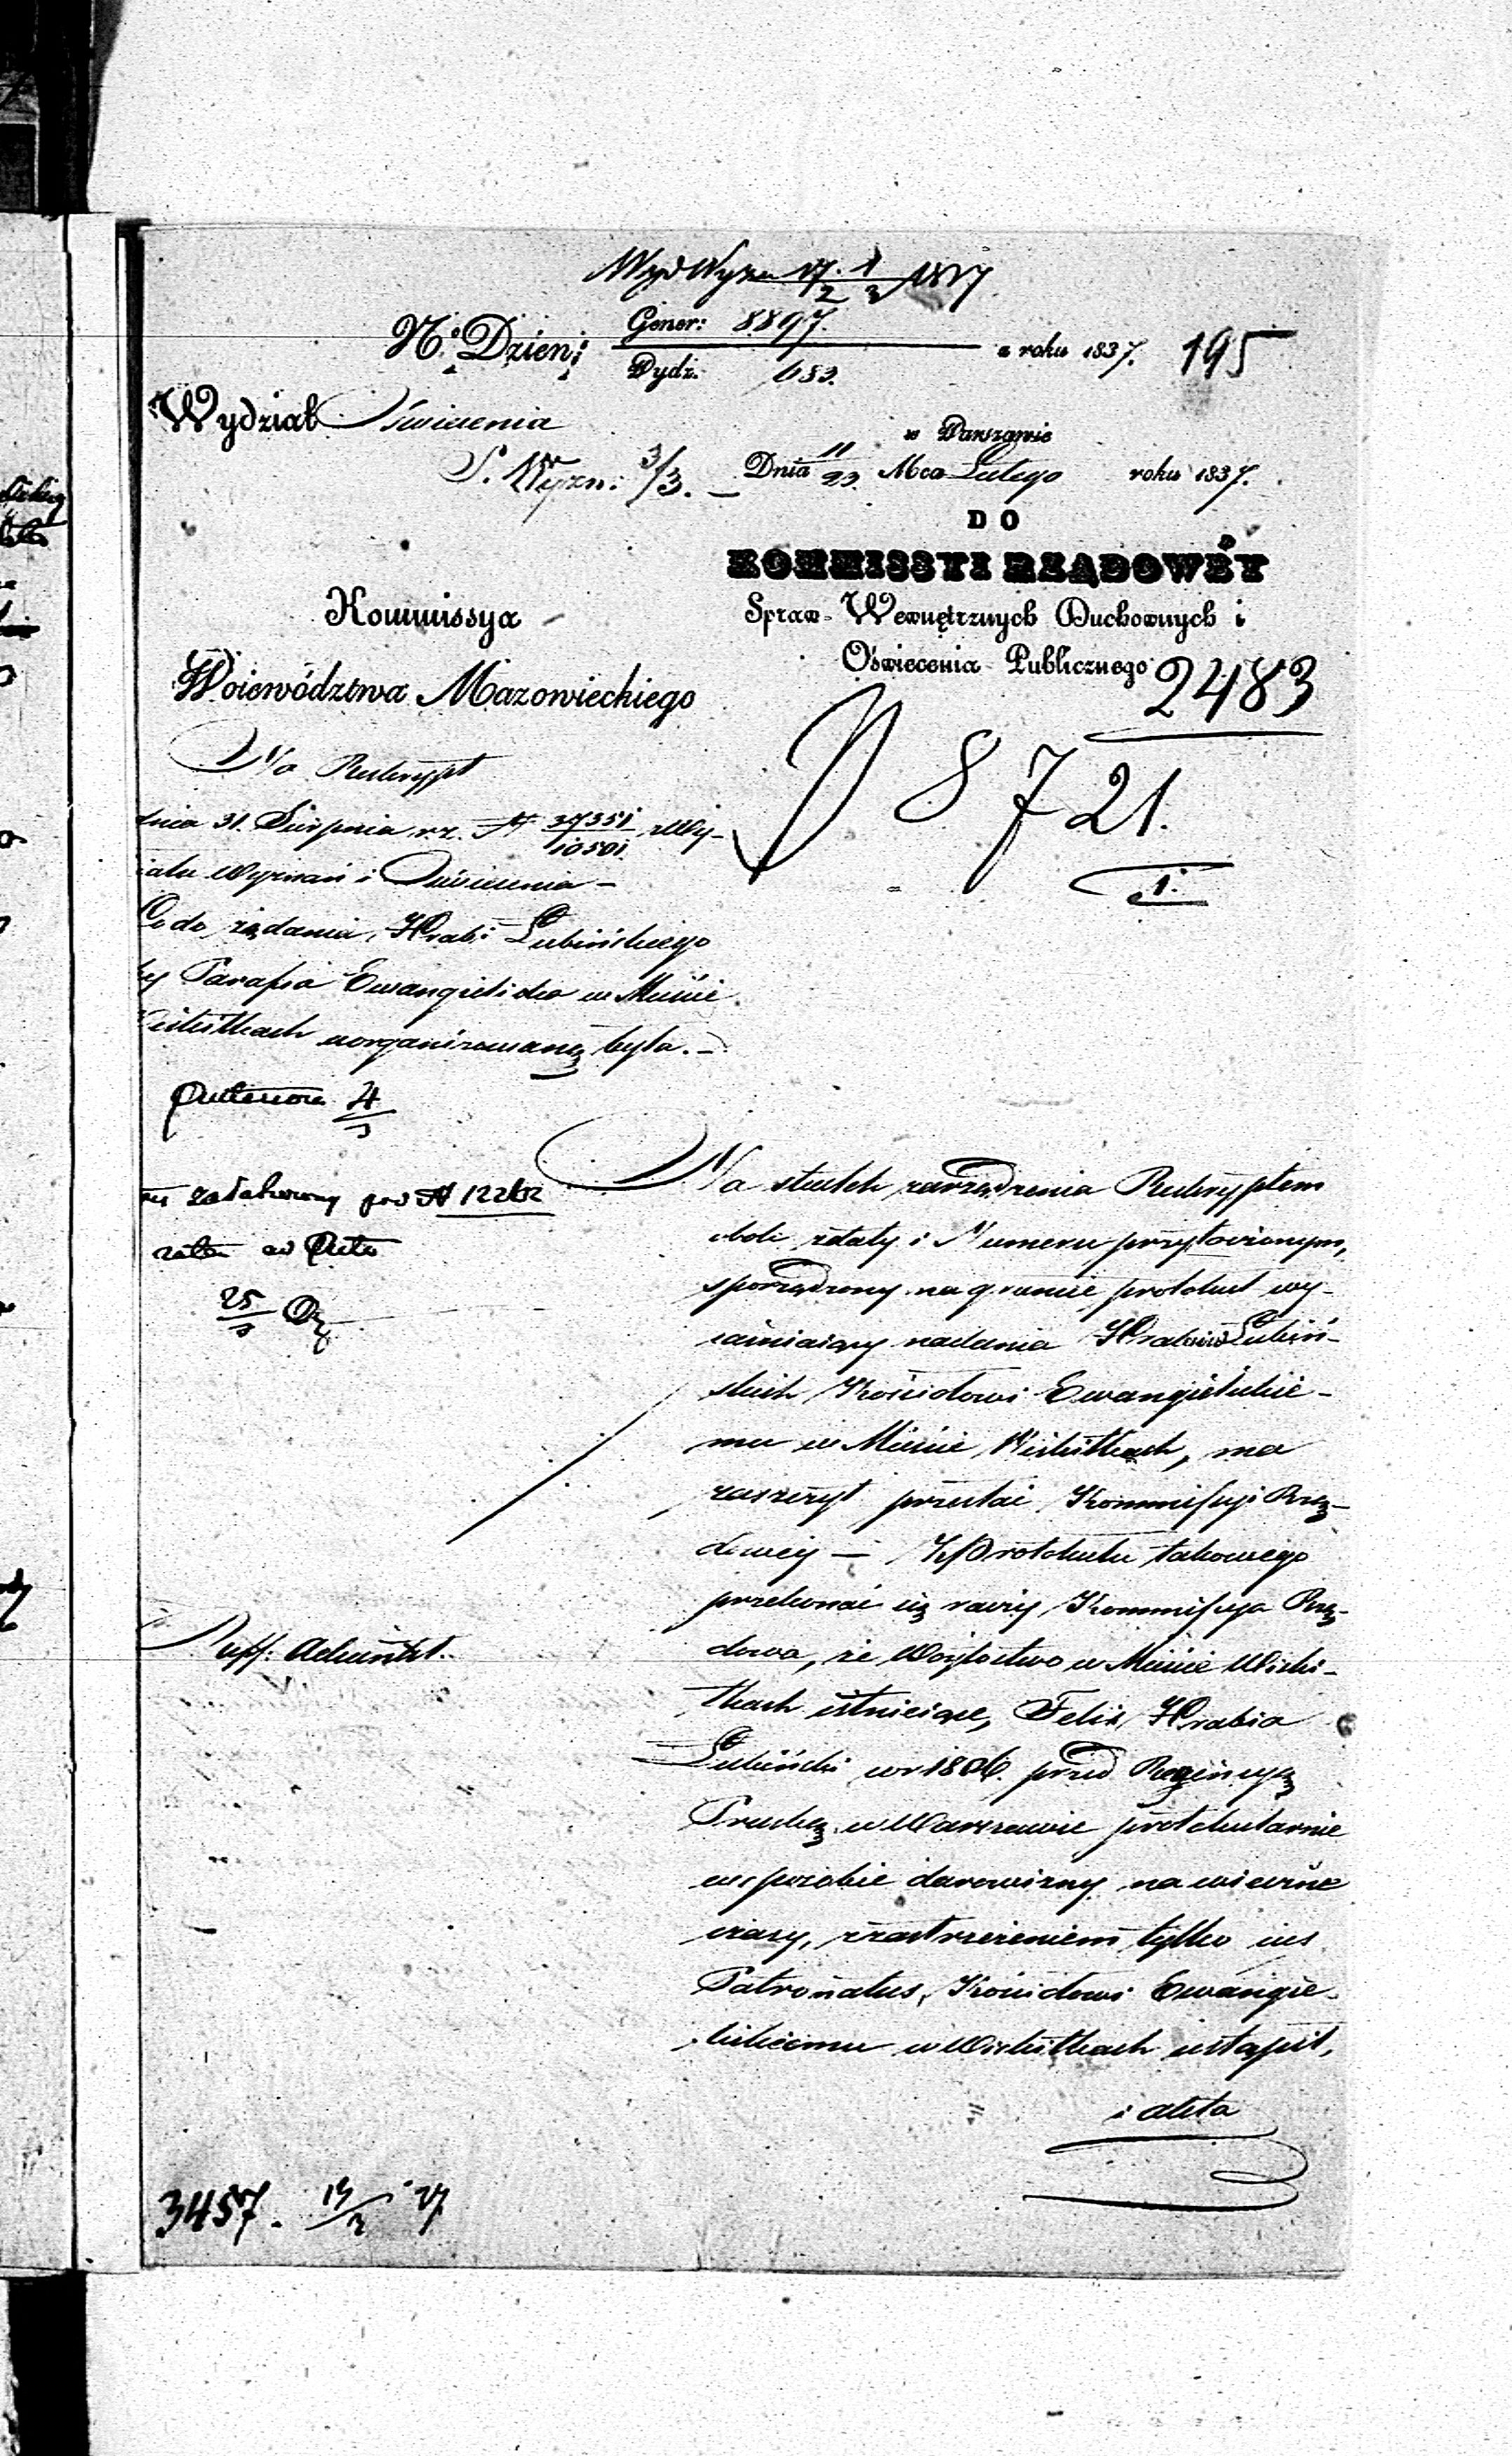 N: Dzien: Gener: 8897. z roku 1837. 195
Dydz. 683.
Wydział Oświecenia
w Warszawie
S. Wyzn: 3/3. — Dnia 11/23. Mca Lutego roku 1837.
DO
KOMMISSYI RZĄDOWÉY
Spraw Wewnętrznych Duchownych i
Oświecenia Publicznego
2483
Kommissya
Woiewództwa Mazowieckiego
8721.
1.
Na Reskrypt
dnia 31. Sierpnia r.z. N 37351/10501. z Wy-
działu Wyznań i Oświecenia —
Co do żądania Hrabi Łubińskiego
by Parafia Ewangielicka w Mieście
Wiskitkach uorganizowaną była. —
załatwiony pod N 12262
25/3
Na skutek zarządzenia Reskryptem
obok z daty i Numeru przytoczonym,
sporządzony na gruncie protokuł wy-
iaśniaiący nadania Hrabiów Łubiń-
skich Kościołowi Ewangielickie-
mu w Mieście Wiskitkach, ma
zaszczyt przesłać Kommissyi Rzą-
dowey — Z Protokułu takowego
przekonać się raczy Kommissya Rzą-
dowa, że Wóytostwo w Mieście Wiski-
tkach istnieiące, Felix Hrabia
Łubiński w r 1806. przed Regencyą
Pruską w Warszawie protokularnie
w sposobie darowizny na wieczne
czasy, z zastrzeżeniem tylko ius
Patronatus, Kościołowi Ewangie-
lickiemu w Wiskitkach ustąpił,
i akta
3457.